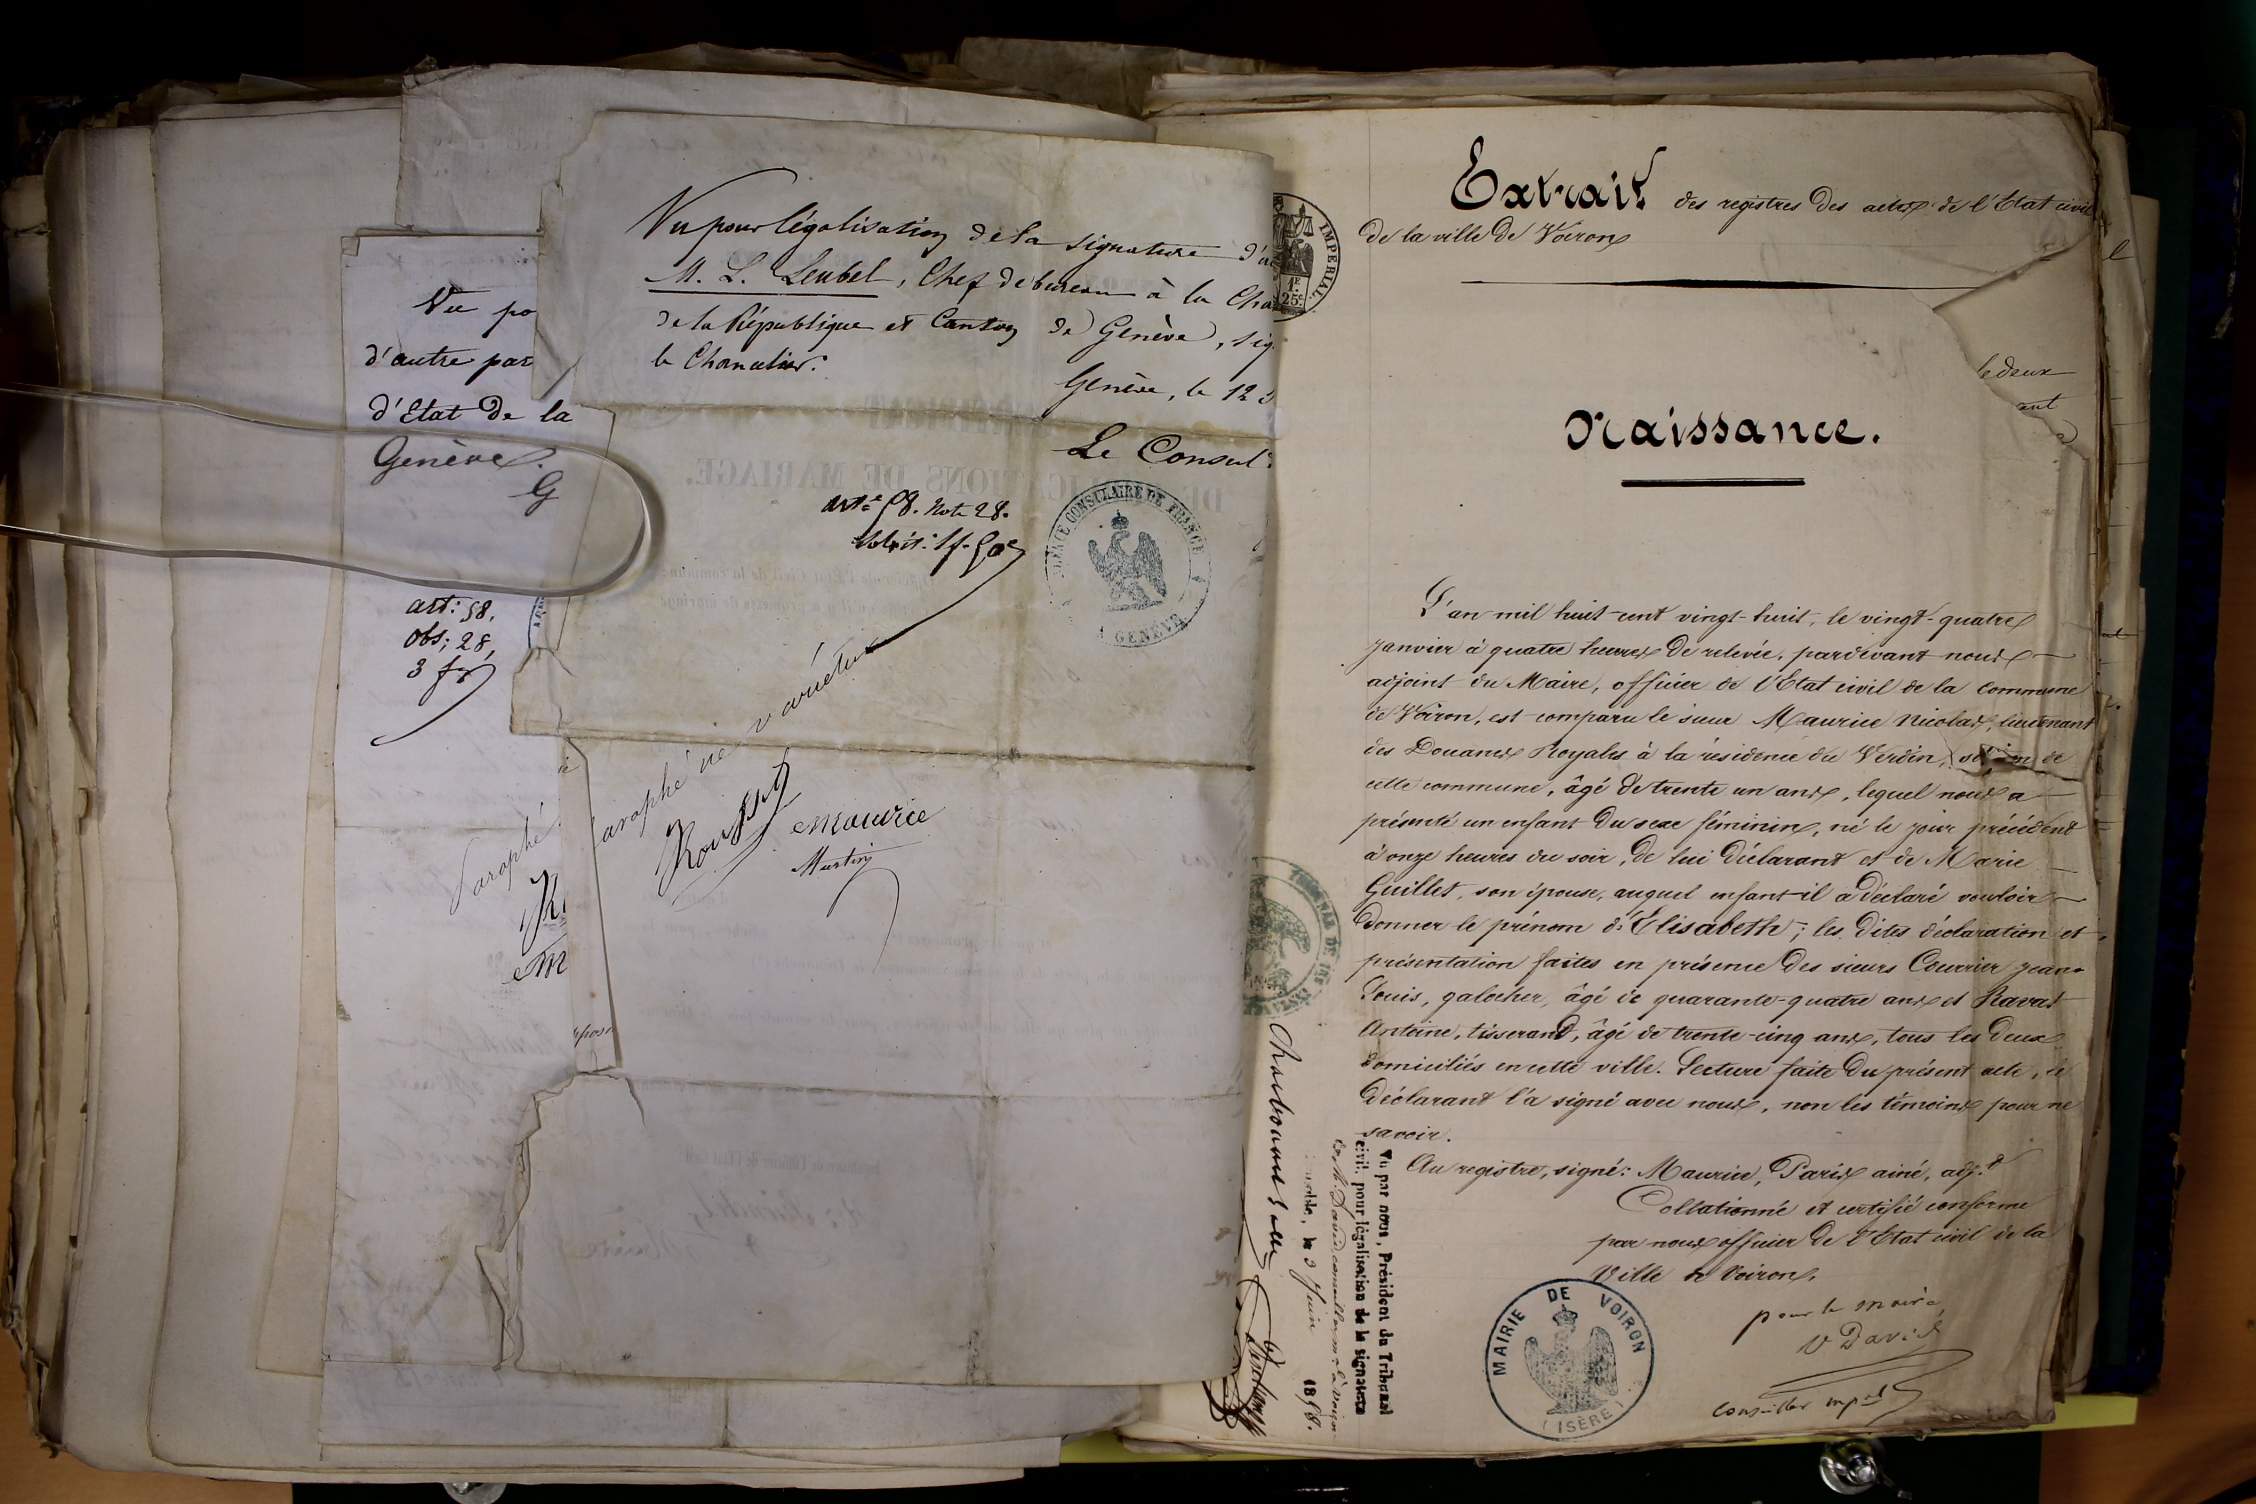 Vu po
d'autre par
d'Etat de la
Genève.
G
art: 58,
obs; 28,
3 f
Paraphé
Vu pour légalisation de la signature d'a
M. L. Leubel, Chef de bureau à la Cha
de la République et Canton de Genève, sig.
le Chancelier.
Genève, le 12
Le Consul
DE PUBLICATIONS DE MARIAGE.
artᵉ 58. Note 28.
1f. 50ᶜ
AGENCE CONSULAIRE DE FRANCE
A GENÈVE
araphé ne varietur
Rousset
Maurice
Martin
IMPERIAL.
1F
25c
Extrait des registres des actes de l'Etat civil
de la ville de Voiron
ledeux
ant
Naissance.
L'an mil huit cent vingt-huit, le vingt-quatre
janvier à quatre heures de relevée, pardevant nous
adjoint du Maire, officier de l'Etat civil de la commune
de Voiron, est comparu le sieur Maurice Nicolas, lieutenant
des Douanes Royales à la résidence du Verdin, de
cette commune, âgé de trente un ans, lequel nous a
présenté un enfant du sexe féminin, né le jour précédent
à onze heures du soir, de lui déclarant et de Marie
Guillet, son épouse, auquel enfant il a déclaré vouloir
donner le prénom d'Elisabeth; les dites déclaration et
présentation faites en présence des sieurs Courrier Jean
Louis, galocher, âgé de quarante-quatre ans et Ravat
Antoine, tisserand, âgé de trente-cinq ans, tous les deux
domiciliés en cette ville. Lecture faite du présent acte, le
déclarant l'a signé avec nous, non les témoins pour ne
savoir.
Au registre, signé: Maurice, Paris ainé, adj.ᵗ
Collationné et certifié conforme
par nous officier de l'Etat civil de la
Ville de Voiron.
pour le maire
V David
Conseiller mpal
MAIRIE DE VOIRON
(ISÈRE)
Vu par nous, Président du Tribunal
civil, pour légalisation de la signature
de M. David conseiller mpal à Voiron
le 3 Juin 1858.